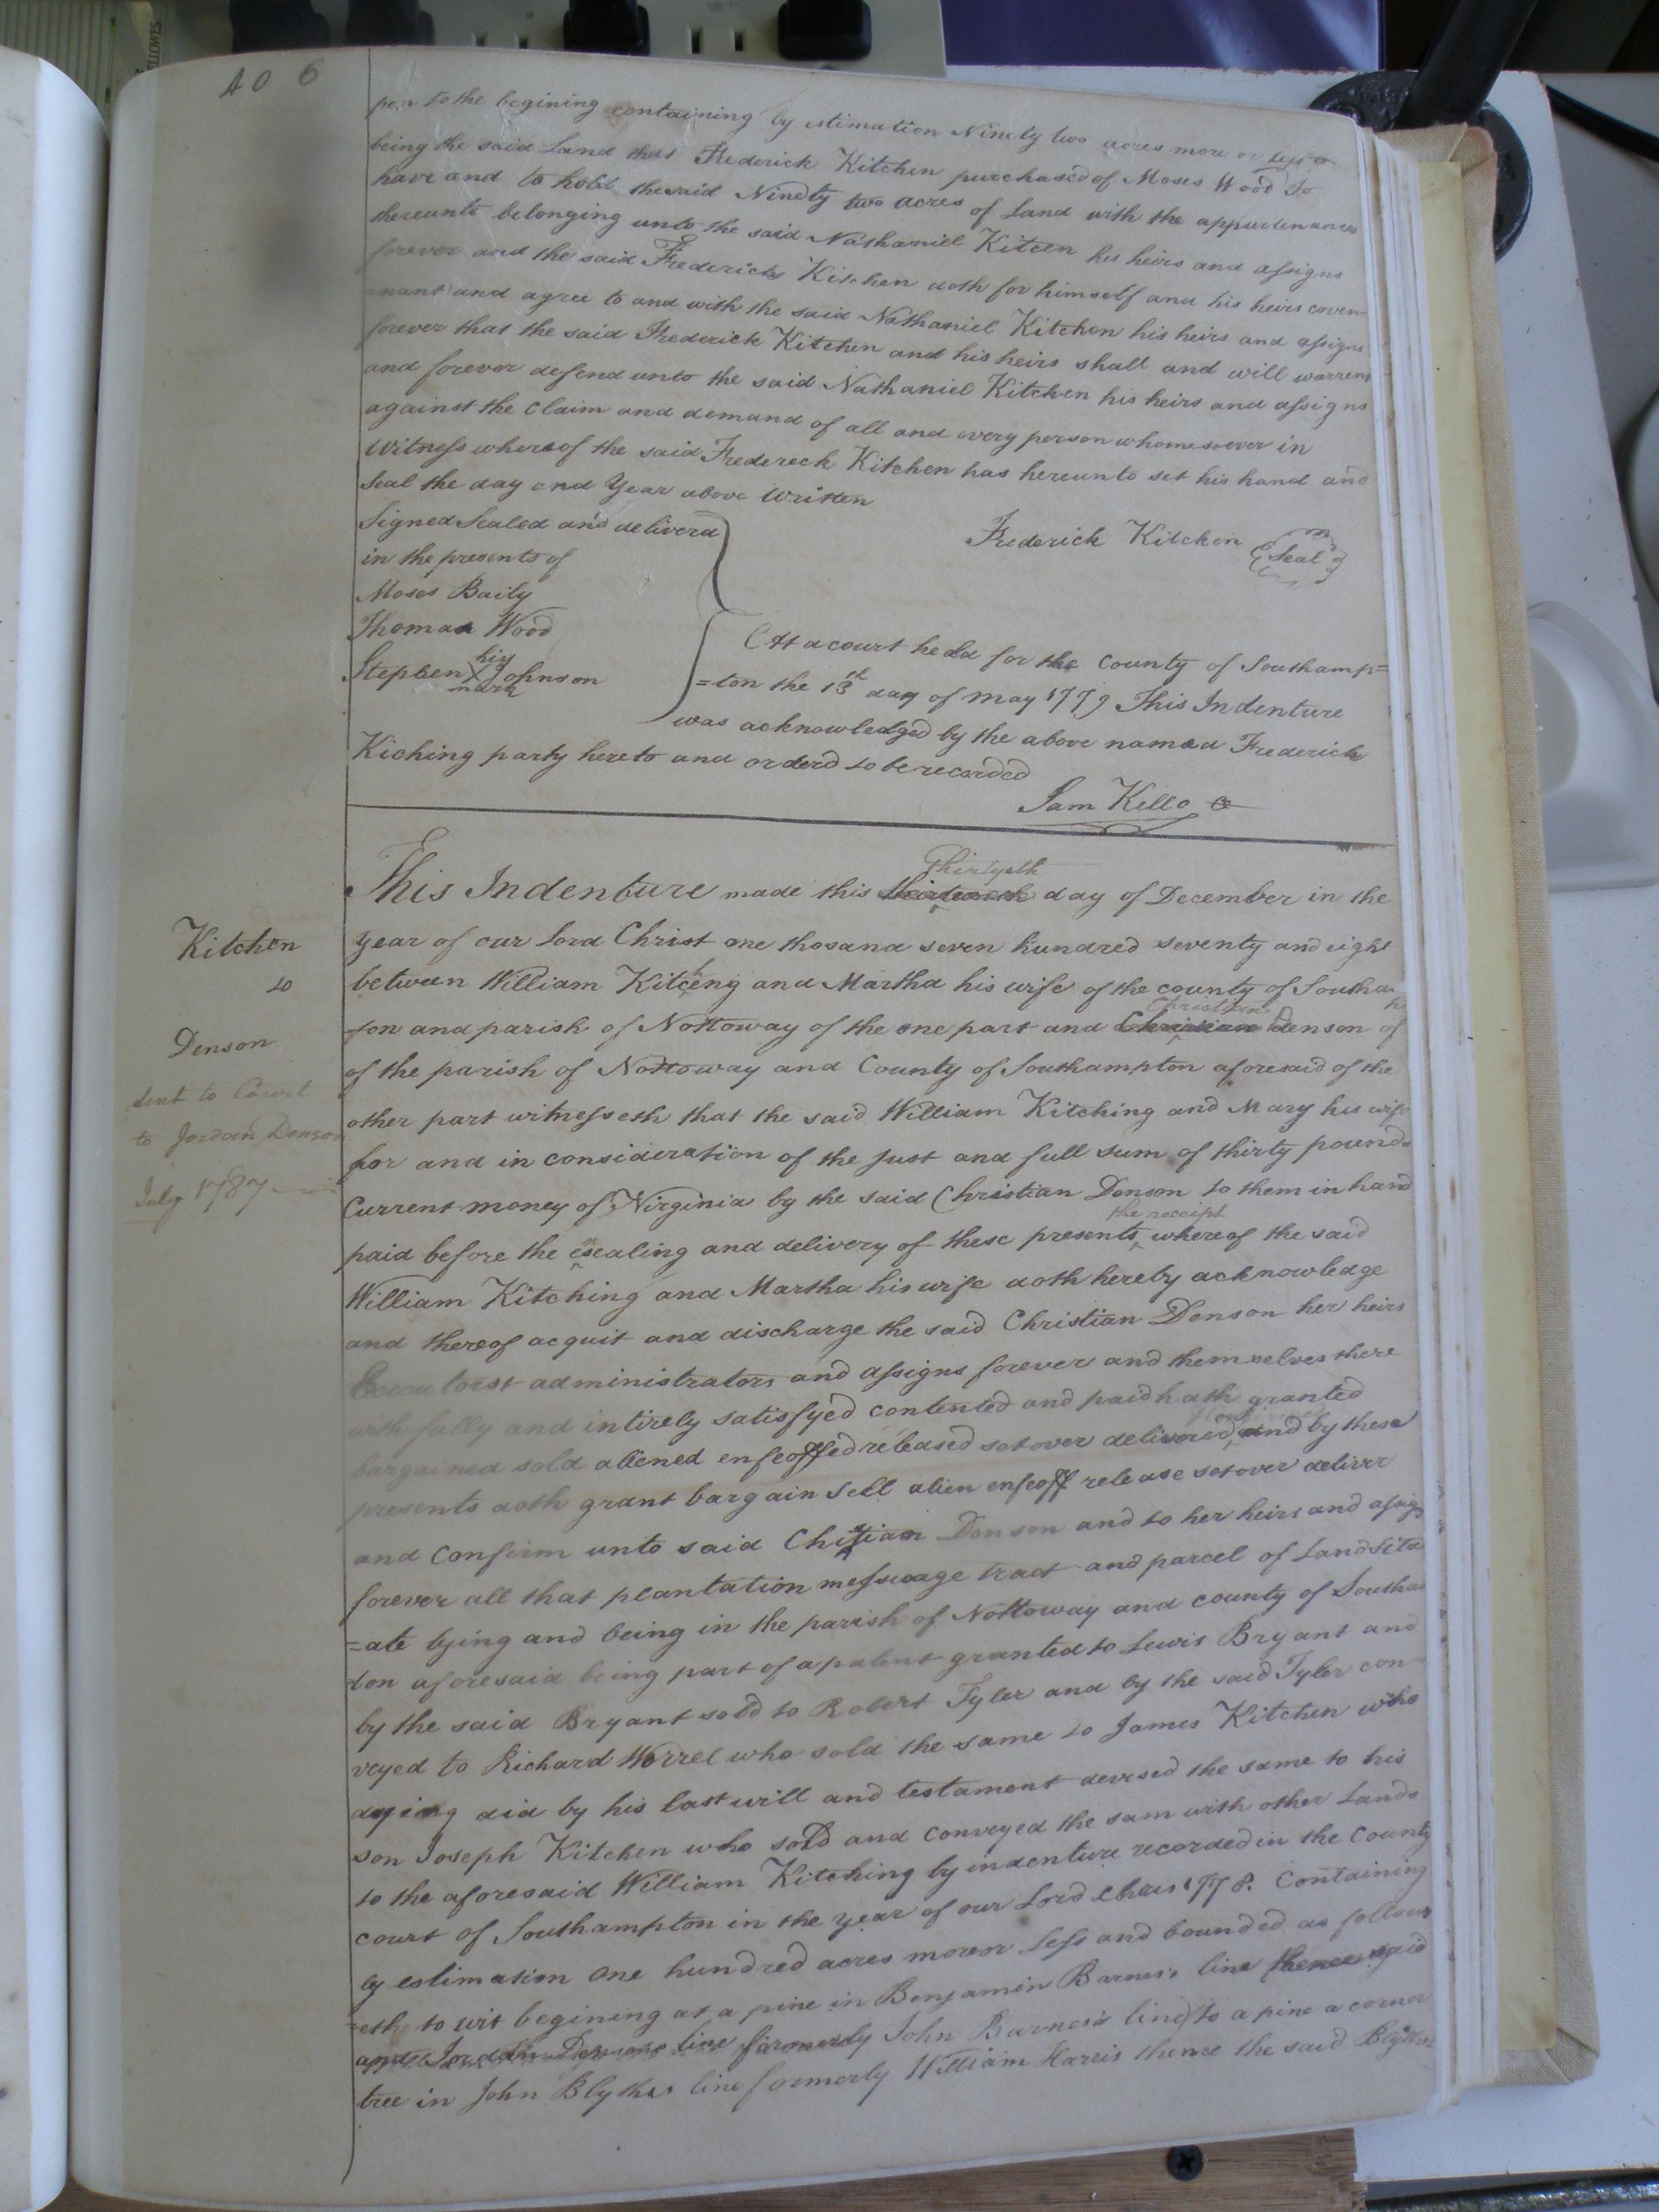 406
to the begining containing by estimation Ninety two acres more or less
being the said Land that Frederick Kitchen purchased of Moses Wood To
have and to hold the said Ninety two acres of Land with the appurtenances
thereunto belonging unto the said Nathaniel Kitcen his heirs and assigns
forever and the said Frederick Kitchen doth for himself and his heirs coven
nant and agree to and with the said Nathaniel Kitchen his heirs and assigns
forever that the said Frederick Kitchen and his heirs shall and will warrent
and forever defend unto the said Nathaniel Kitchen his heirs and assigns
against the Claim and demand of all and every person whomesoever in
Witness whereof the said Fredereck Kitchen has hereunto set his hand and
Seal the day and Year above Written
Signed Sealed and deliverd
Frederick Kitchen Seal
in the presents of
Moses Baily
Thomas Wood
Stephen his X mark Johnson
At a court held for the County of Southamp=
=ton the 13th day of may 1779 This Indenture
was acknowledged by the above named Frederick
Kiching party hereto and orderd to be recorded
Sam Kello
Thirtyeth
This Indenture made this day of December in the
Kitchen
year of our Lord Christ one thosand seven hundred seventy and eight
to
between William Kitcheng and Martha his wife of the county of Southa
Christian
ton and parish of Nottoway of the one part and Christian Denson of
Denson
of the parish of Nottoway and County of Southampton aforesaid of the
sent to Court
other part witnesseth that the said William Kitching and Mary his wife
to Jordan Denson
for and in consideration of the just and full sum of thirty pounds
July 1787
Current money of Virginia by the said Christian Denson to them in hand
the receipt
paid before the ensealing and delivery of these presents whereof the said
William Kitching and Martha his wife doth hereby acknowledge
and thereof acquit and discharge the said Christian Denson her heirs
administrators and assigns forever and themselves there
with fully and intirely satisfyed contented and paid hath granted
bargained sold aliened enfeoffed released setover delivered and by these
presents doth grant bargain Sell alien enfeoff release setover deliver
and Confirm unto said Chistian Denson and to her heirs and assigs
forever all that plantation messuage tract and parcel of Land Situ
=ate lying and being in the parish of Nottoway and county of Southam
ton aforesaid being part of a patent granted to Lewis Bryant and
by the said Bryant sold to Robert Tyler and by the said Tyler con
veyed to Richard Worrel who sold the same to James Kitchen who
dying did by his last will and testament devised the same to his
son Joseph Kitchen who sold and conveyed the sam with other Lands
to the aforesaid William Kitching by indenture recorded in the County
court of Southampton in the year of our Lord Chris 1778. Containing
by estimation One hundred acres moreor Less and bounded as follow
=eth to wit begining at a pine in Benjamin Barnes's line said
line formerly John Barnes's line to a pine a corner
tree in John Blythes line formerly William Harris thence the said Blythes